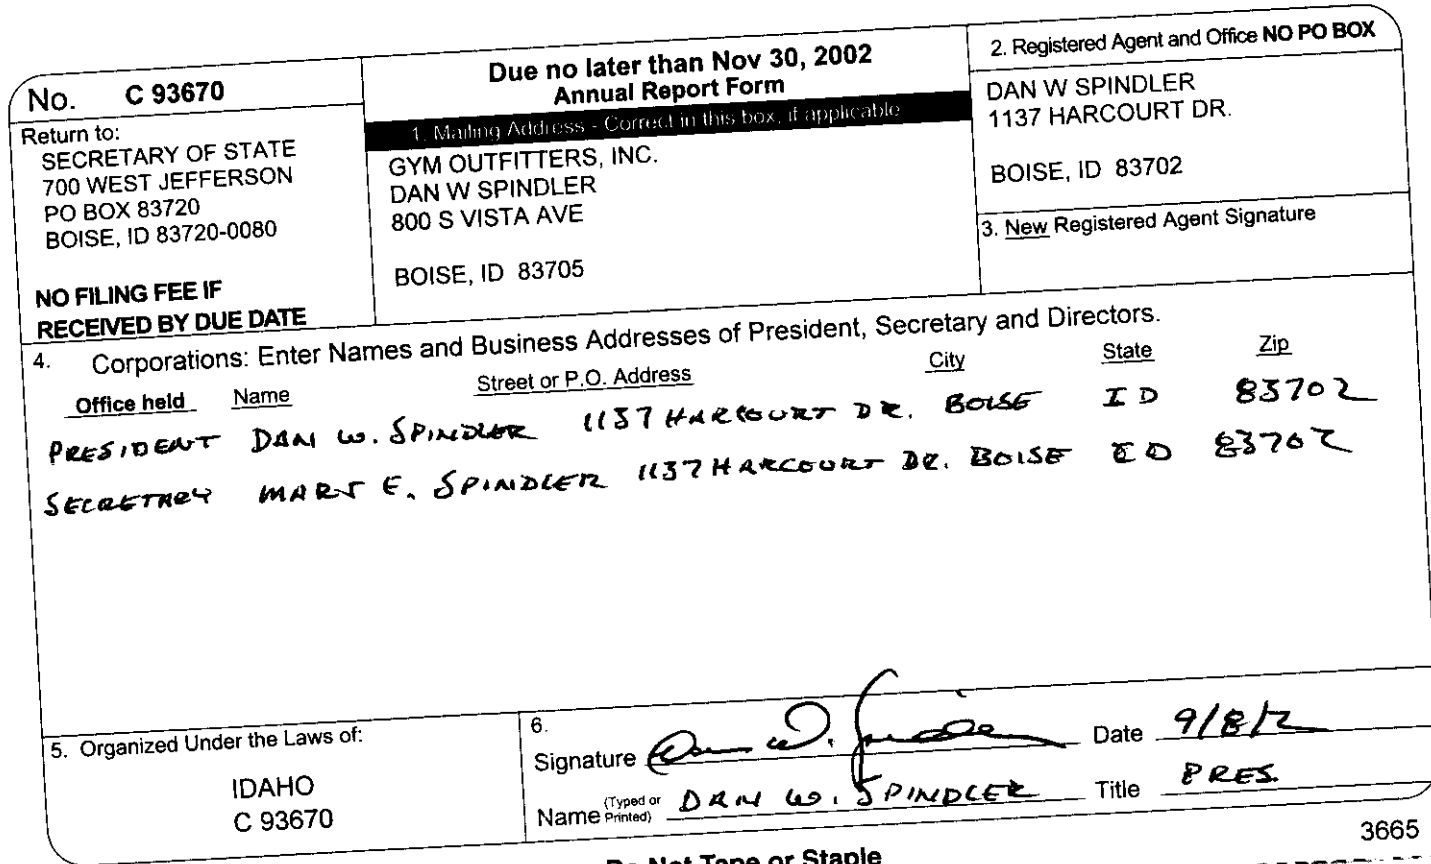 No. C 93670
Return to:
SECRETARY OF STATE
700 WEST JEFFERSON
PO BOX 83720
BOISE, ID 83720-0080
NO FILING FEE IF
RECEIVED BY DUE DATE
Due no later than Nov 30, 2002
Annual Report Form
1. Mailing Address - Correct in this box, if applicable
GYM OUTFITTERS, INC.
DAN W SPINDLER
800 S VISTA AVE
BOISE, ID 83705
2. Registered Agent and Office NO PO BOX
DAN W SPINDLER
1137 HARCOURT DR.
BOISE, ID 83702
3. New Registered Agent Signature
4. Corporations: Enter Names and Business Addresses of President, Secretary and Directors.
Office held Name Street or P.O. Address City State Zip
PRESIDENT DAN W. SPINDLER 1137 HARCOURT DR. BOISE ID 83702
SECRETARY MARY E. SPINDLER 1137 HARCOURT DR. BOISE ID 83702
5. Organized Under the Laws of:
IDAHO
C 93670
6.
Signature Dan W. Spindler Date 9/8/2
Name (Typed or Printed) DAN W. SPINDLER Title PRES.
3665
Do Not Tape or Staple